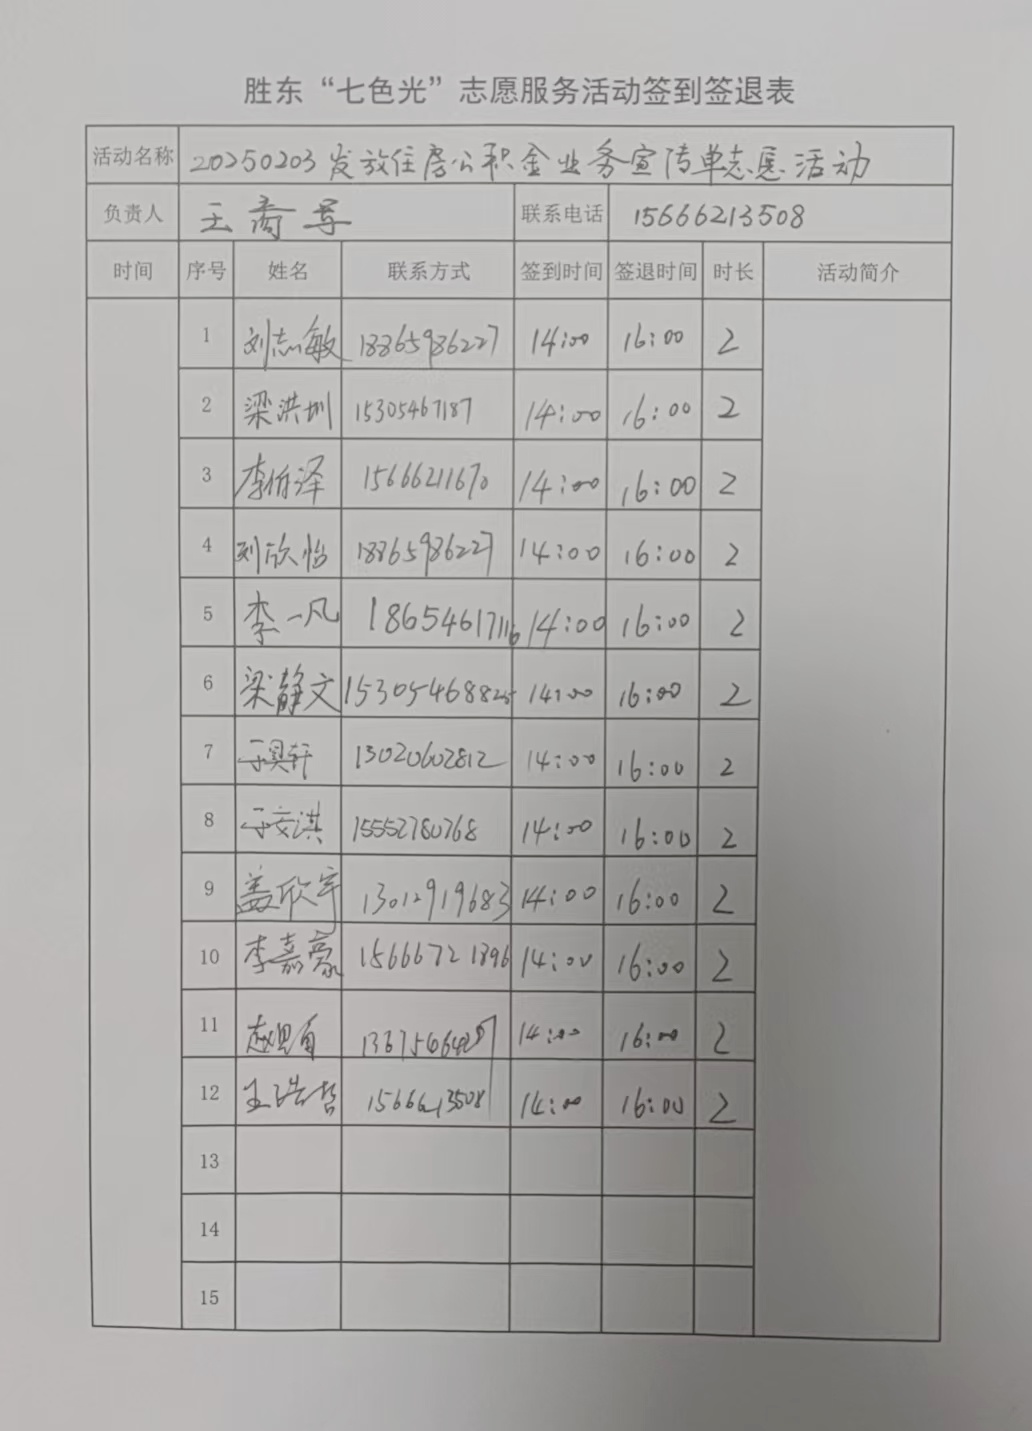 胜东“七色光”志愿服务活动签到签退表
活动名称 20250203发放住房公积金业务宣传单志愿活动
负责人 王 联系电话 15666213508
时间 序号 姓名 联系方式 签到时间 签退时间 时长 活动简介
1 刘志敏 18865986227 14:00 16:00 2
2 梁洪圳 15305467187 14:00 16:00 2
3 李佰泽 15666211670 14:00 16:00 2
4 刘欣怡 18865986227 14:00 16:00 2
5 李一凡 18654617116 14:00 16:00 2
6 梁静文 15305468825 14:00 16:00 2
7 于昊轩 13020602812 14:00 16:00 2
8 于文淇 15552780768 14:00 16:00 2
9 盖欣宇 13012919683 14:00 16:00 2
10 李嘉豪 15666721896 14:00 16:00 2
11 赵 14:00 16:00 2
12 王浩哲 15666213508 14:00 16:00 2
13
14
15